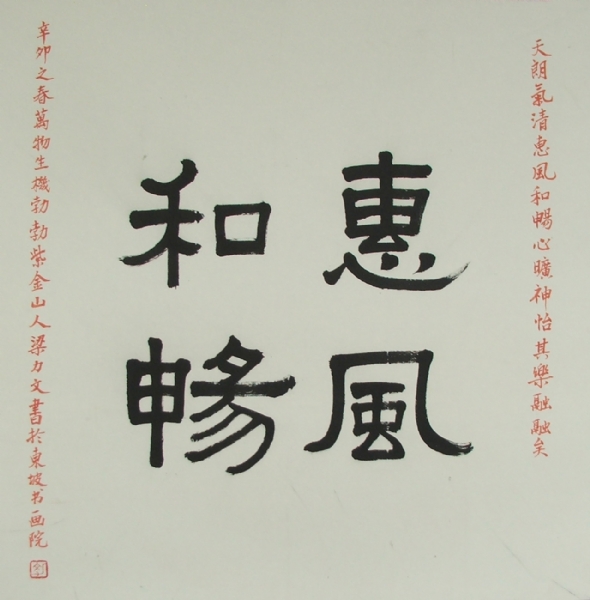 天朗氣清惠風和暢心曠神怡其樂融融矣
惠風
和暢
辛卯之春萬物生機勃勃紫金山人梁力文書於東坡书画院